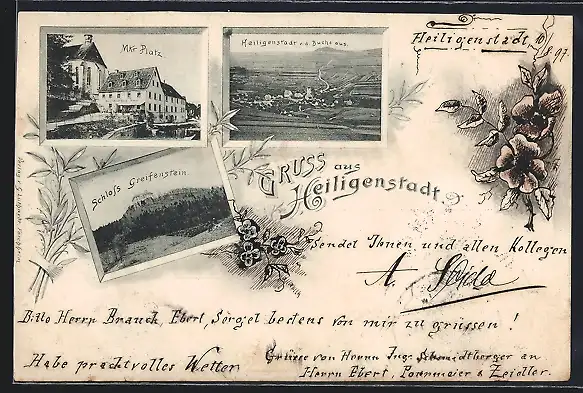 Mkr Platz
Heiligenstadt v. d. Buche aus.
Heiligenstadt, 10/8 97
Schloß Greifenstein.
GRUSS aus
Heiligenstadt.
sendet Ihnen und allen Kollegen
A.
Bitte Herrn Brauch, Ebert, Sörgel bestens von mir zu grüssen!
Habe prachtvolles Wetter
Grüsse von Herrn Ing. Schmidtberger an
Herrn Ebert, Ponnmaier & Zeidler.